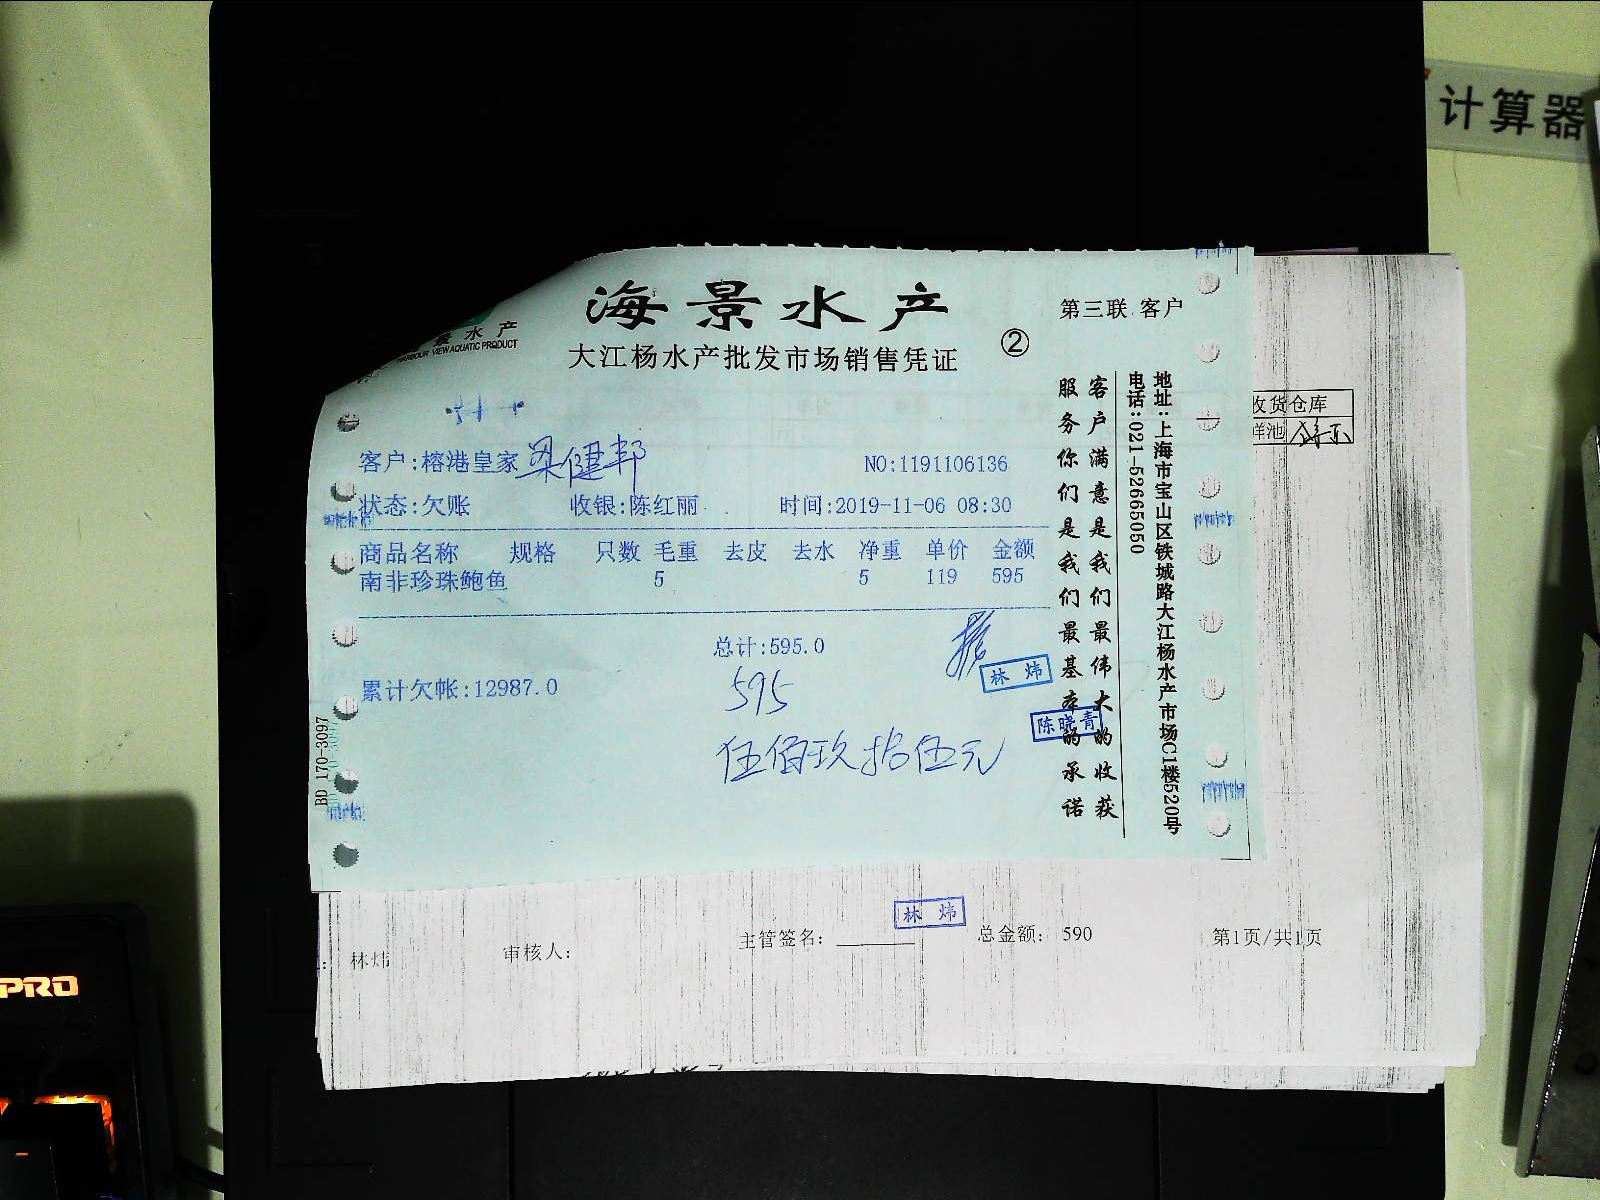 计算器
海景水产
第三联 客户
景水产
HARBOUR VIEW AQUATIC PRODUCT
大江杨水产批发市场销售凭证
②
客户:榕港皇家 梁健邦
NO:1191106136
状态:欠账 收银:陈红丽 时间:2019-11-06 08:30
商品名称 规格 只数 毛重 去皮 去水 净重 单价 金额
南非珍珠鲍鱼 5 5 119 595
总计:595.0
累计欠帐:12987.0
595
伍佰玖拾伍元
林炜
陈晓青
客户满意是我们最伟大的收获
服务你们是我们最基本的承诺
地址:上海市宝山区铁城路大江杨水产市场C1楼520号
电话:021-52665050
BD 170-3097
收货仓库
林炜
林炜
审核人:
主管签名:
总金额: 590
第1页/共1页
PRO